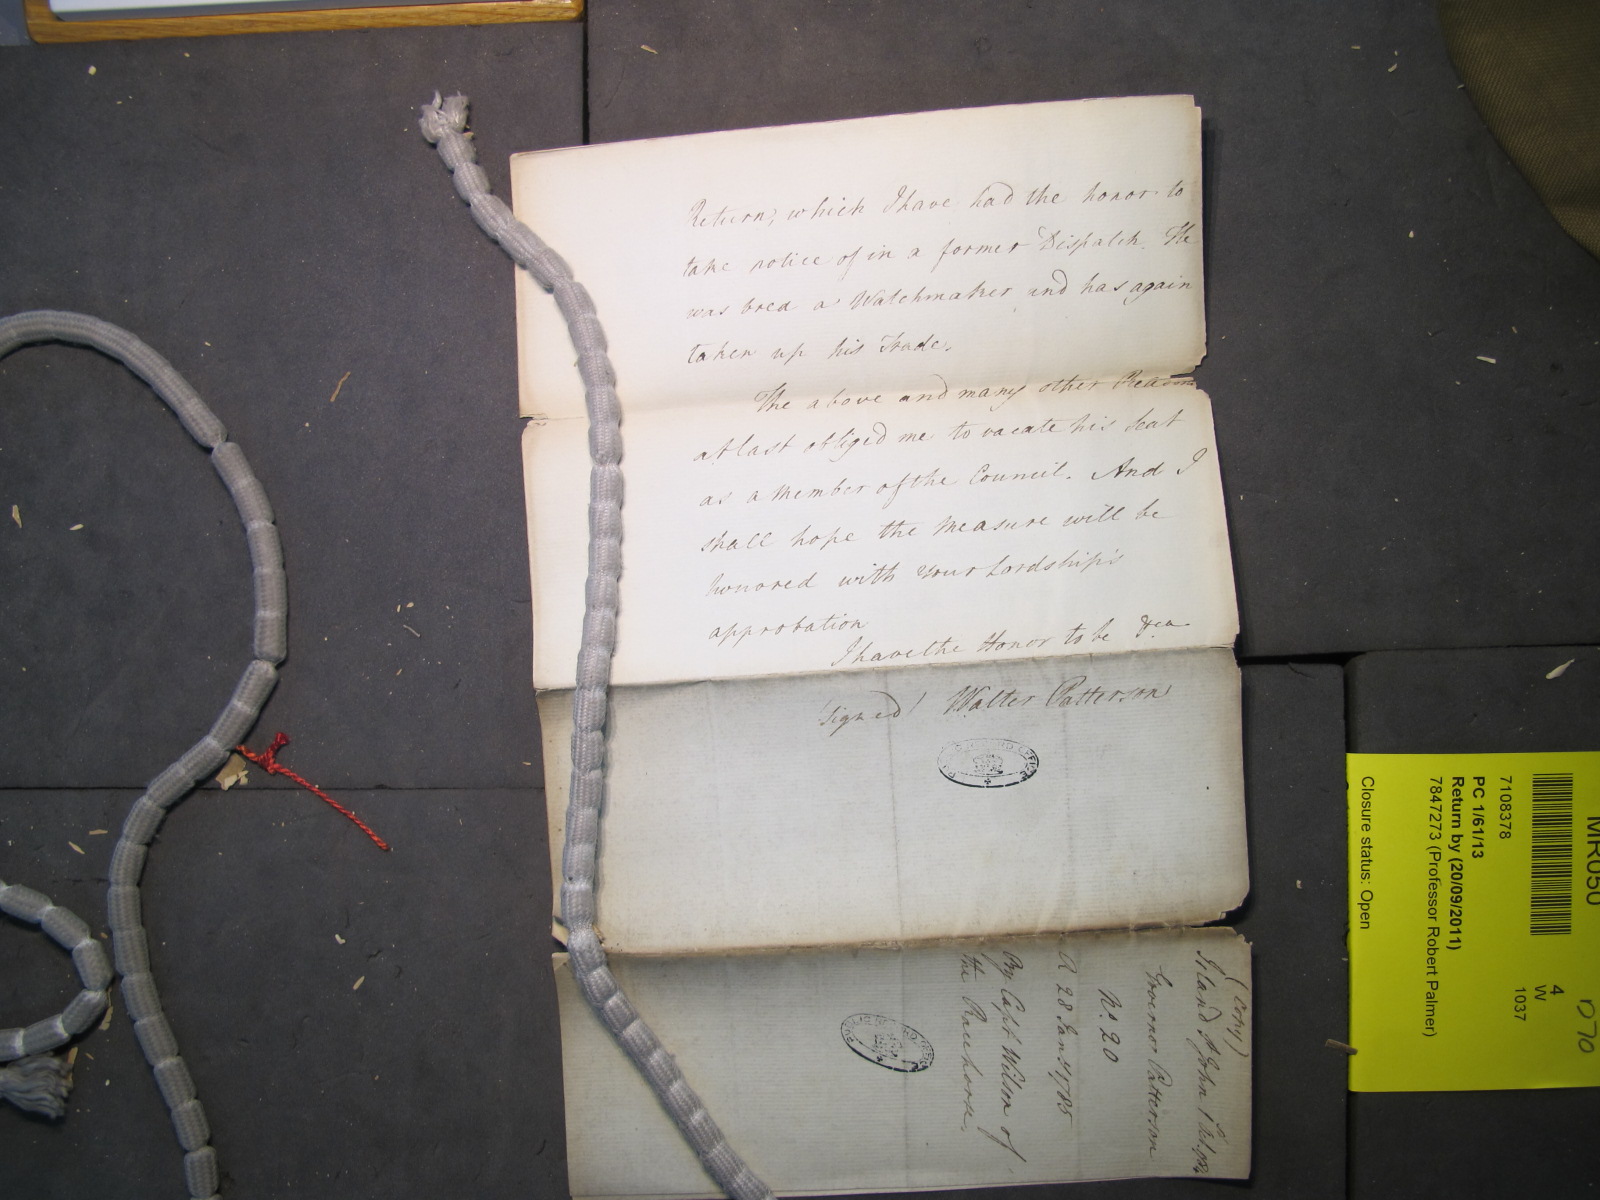 Return, which I have had the honor to
take notice of in a former Dispatch. He
was bred a Watchmaker and has again
taken up his Trade.
The above and many other Reasons
at last obliged me to vacate his Seat
as a Member of the Council. And I
shall hope the Measure will be
honored with Your Lordship's
approbation
I have the Honor to be &ca
Signed) Walter Patterson
PUBLIC RECORD OFFICE
(Copy)
Island St John
Governor Patterson
No. 20
R 28 Jany 1785
By Capt Wilson of
the Racehorse.
PUBLIC RECORD OFFICE
MR050
4
W
1037
7108378
PC 1/61/13
Return by (20/09/2011)
7847273 (Professor Robert Palmer)
Closure status: Open